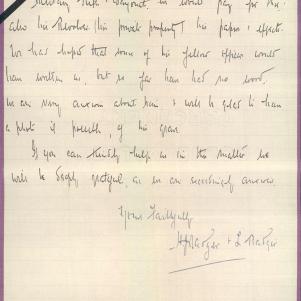 also his Revolver (his private property) his papers & effects.
We had hoped that some of his fellow officers would
have written us, but so far have had no word,
we are very anxious about him & will be glad to have
a photo if possible, of his grave.
If you can kindly help us in this matter we
will be deeply grateful, as we are exceedingly anxious.
Yours faithfully